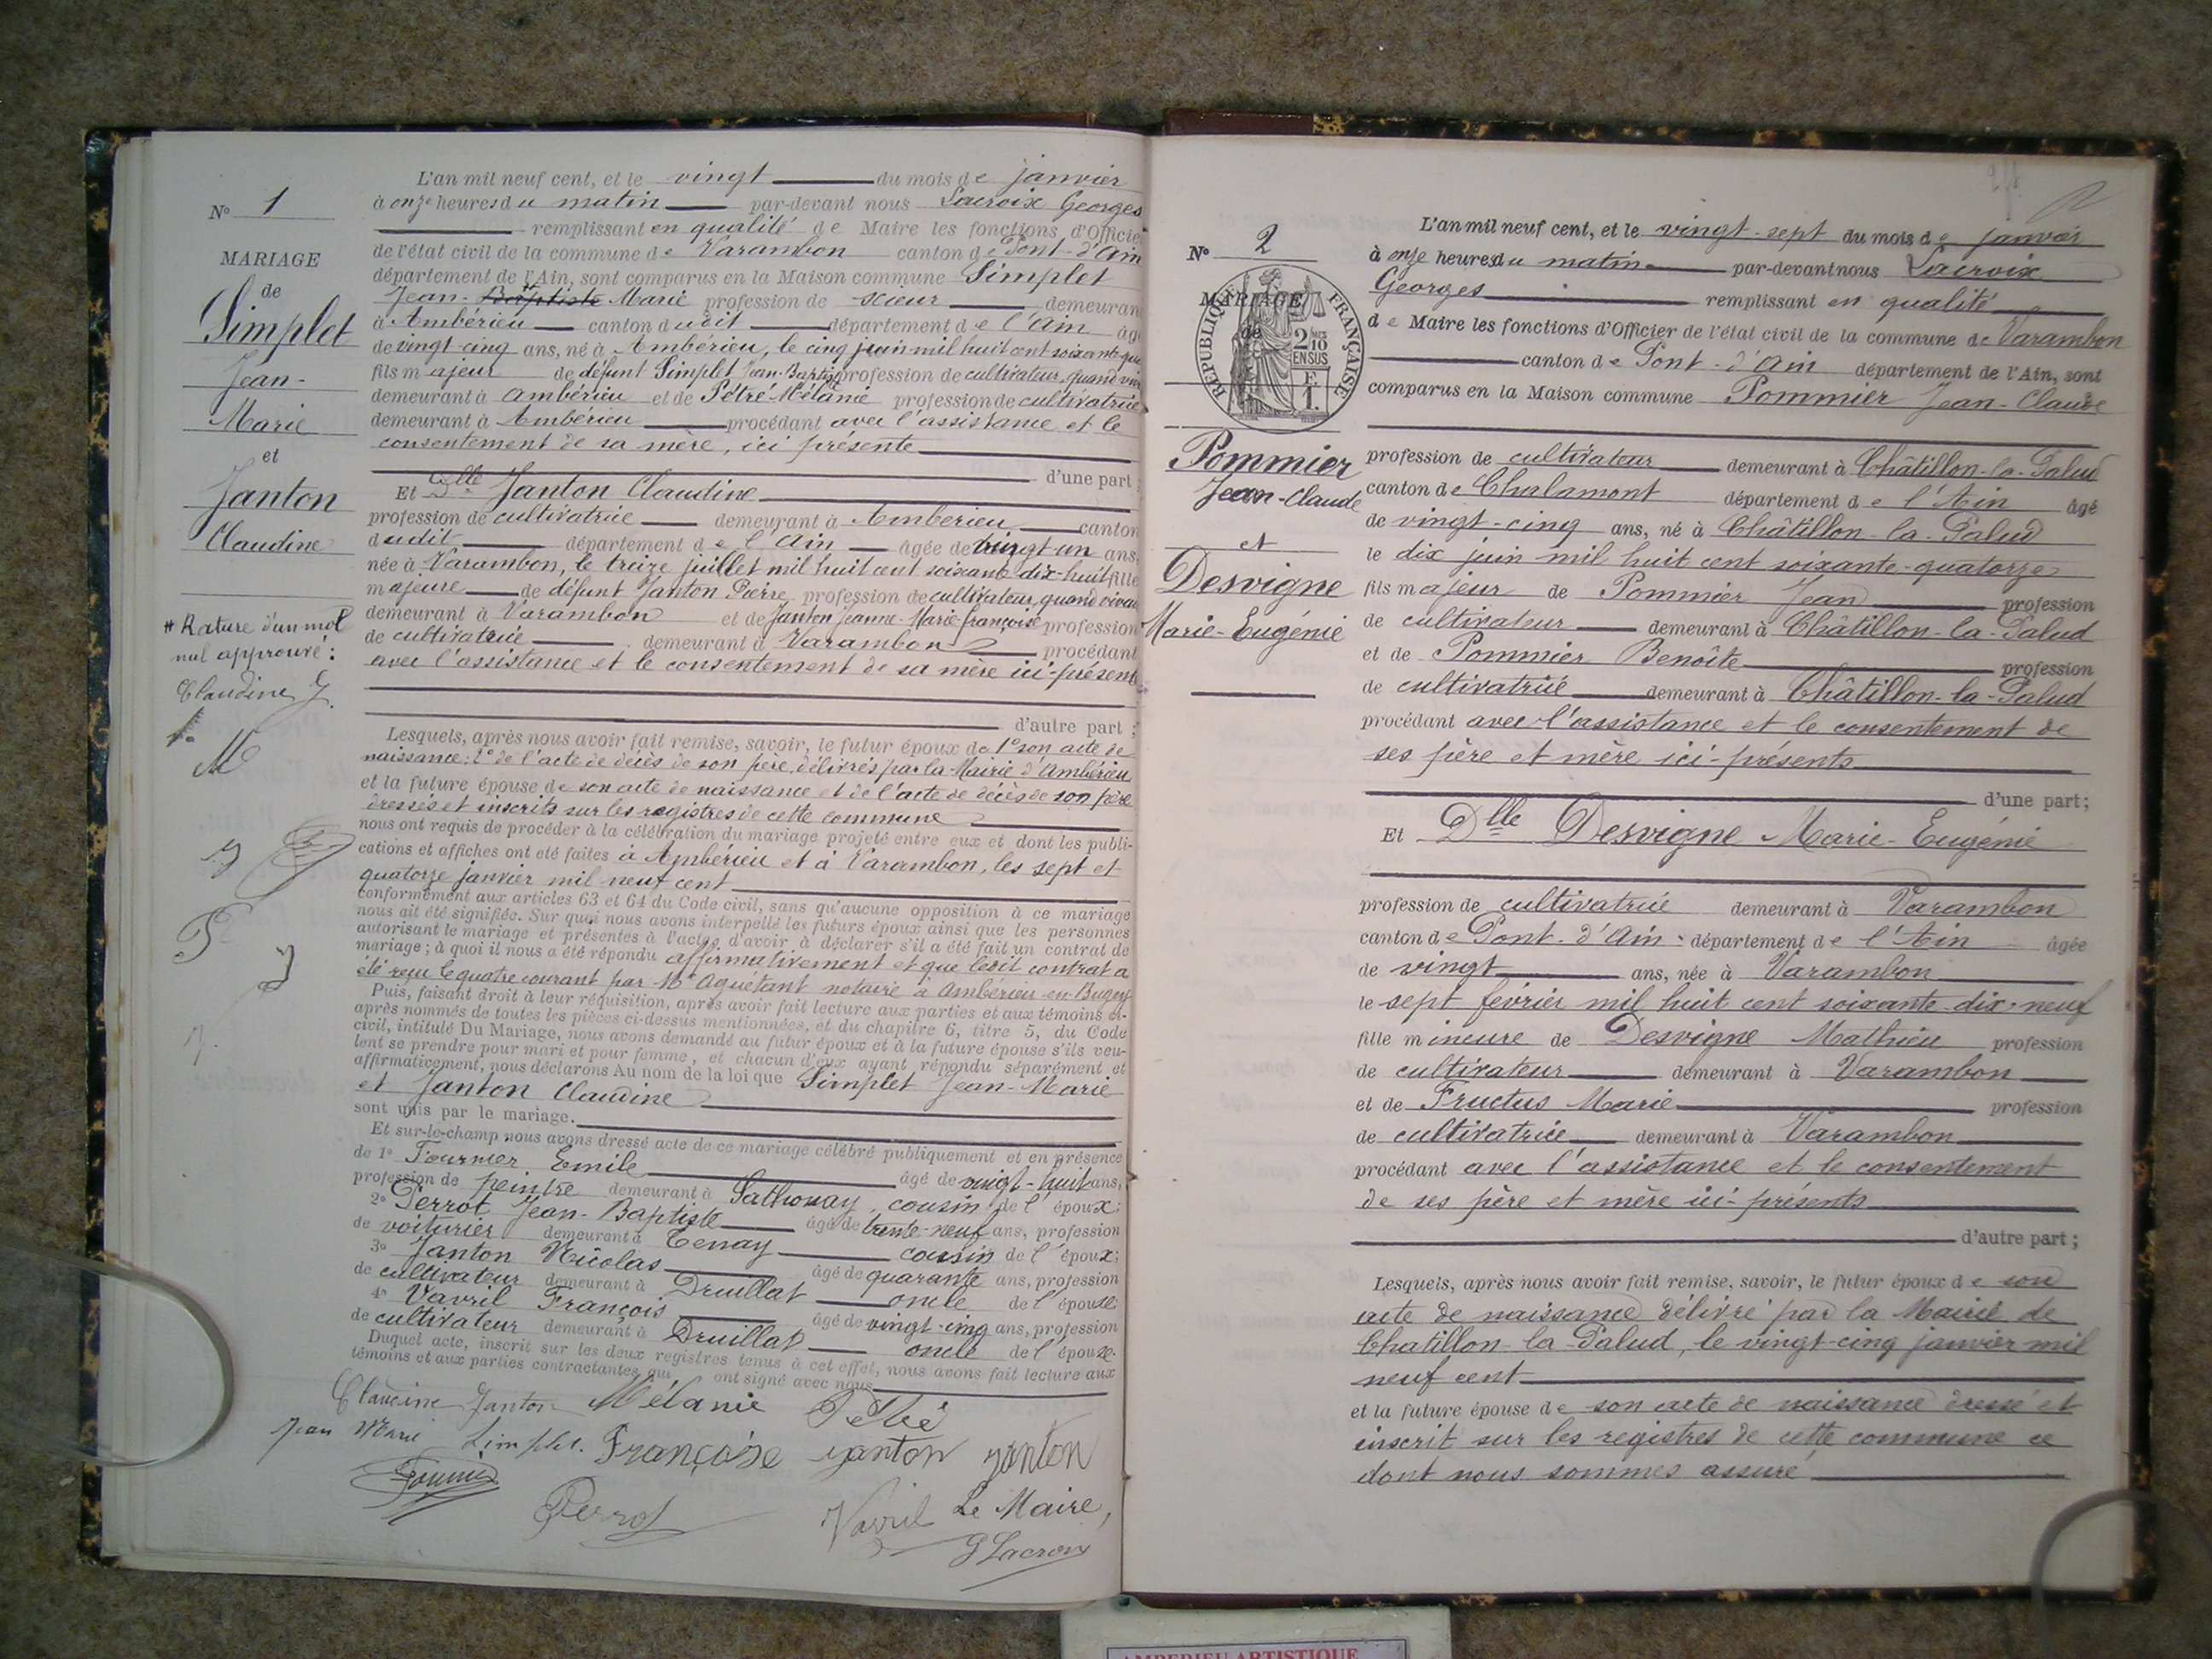 N° 1
MARIAGE
de
Simplet
Jean-
Marie
et
Janton
Claudine
# Rature d'un mot
nul approuvé :
Claudine J.
M
J
P
J
L'an mil neuf cent, et le vingt du mois de janvier
à onze heures du matin par-devant nous Lacroix Georges
remplissant en qualité de Maire les fonctions d'Officier
de l'état civil de la commune de Varambon canton de Pont-d'Ain
département de l'Ain, sont comparus en la Maison commune Simplet
Jean-Baptiste Marie profession de scieur demeurant
à Ambérieu canton dudit département de l'Ain âgé
de vingt-cinq ans, né à Ambérieu, le cinq juin mil huit cent soixante-
fils majeur de défunt Simplet Jean-Baptiste profession de cultivateur, quand
demeurant à Ambérieu et de Pétré Mélanie profession de cultivatrice
demeurant à Ambérieu procédant avec l'assistance et le
consentement de sa mère, ici présente
d'une part ;
Et Dlle Janton Claudine
profession de cultivatrice demeurant à Ambérieu canton
dudit département de l'Ain âgée de vingt un ans,
née à Varambon, le treize juillet mil huit cent soixante-dix-huit fille
majeure de défunt Janton Pierre profession de cultivateur, quand vivait
demeurant à Varambon et de Janton Jeanne-Marie Françoise profession
de cultivatrice demeurant à Varambon procédant
avec l'assistance et le consentement de sa mère ici-présente
d'autre part ;
Lesquels, après nous avoir fait remise, savoir, le futur époux de 1° son acte de
naissance ; 2° de l'acte de décès de son père, délivrés par la Mairie d'Ambérieu
et la future épouse de son acte de naissance et de l'acte de décès de son père
dressés et inscrits sur les registres de cette commune
nous ont requis de procéder à la célébration du mariage projeté entre eux et dont les publi-
cations et affiches ont été faites à Ambérieu et à Varambon, les sept et
quatorze janvier mil neuf cent
conformément aux articles 63 et 64 du Code civil, sans qu'aucune opposition à ce mariage
nous ait été signifiée. Sur quoi nous avons interpellé les futurs époux ainsi que les personnes
autorisant le mariage et présentes à l'acte, d'avoir à déclarer s'il a été fait un contrat de
mariage ; à quoi il nous a été répondu affirmativement et que ledit contrat a
été reçu le quatre courant par Me Aguétant notaire à Ambérieu-en-Bugey
Puis, faisant droit à leur réquisition, après avoir fait lecture aux parties et aux témoins ci-
après nommés de toutes les pièces ci-dessus mentionnées, et du chapitre 6, titre 5, du Code
civil, intitulé Du Mariage, nous avons demandé au futur époux et à la future épouse s'ils veu-
lent se prendre pour mari et pour femme, et chacun d'eux ayant répondu séparément et
affirmativement, nous déclarons Au nom de la loi que Simplet Jean-Marie
et Janton Claudine
sont unis par le mariage.
Et sur-le-champ nous avons dressé acte de ce mariage célébré publiquement et en présence
de 1° Fournier Emile âgé de vingt-huit ans,
profession de peintre demeurant à Sathonay, cousin de l'époux ;
2° Perrot Jean-Baptiste âgé de trente-neuf ans, profession
de voiturier demeurant à Tenay cousin de l'époux ;
3° Janton Nicolas âgé de quarante ans, profession
de cultivateur demeurant à Druillat oncle de l'épouse ;
4° Vavril François âgé de vingt-cinq ans, profession
de cultivateur demeurant à Druillat oncle de l'épouse.
Duquel acte, inscrit sur les deux registres tenus à cet effet, nous avons fait lecture aux
témoins et aux parties contractantes, qui ont signé avec nous
Claudine Janton Mélanie Pétré
Jean Marie Simplet. Françoise janton janton
Fournier
Perrot Vavril Le Maire,
G Lacroix
N° 2
MARIAGE
de
RÉPUBLIQUE FRANÇAISE
2/10 EN SUS
F. 1.
Pommier
Jean-Claude
et
Desvigne
Marie-Eugénie
L'an mil neuf cent, et le vingt-sept du mois de janvier
à onze heures du matin par-devant nous Lacroix
Georges remplissant en qualité
de Maire les fonctions d'Officier de l'état civil de la commune de Varambon
canton de Pont-d'Ain département de l'Ain, sont
comparus en la Maison commune Pommier Jean-Claude
profession de cultivateur demeurant à Châtillon-la-Palud
canton de Chalamont département de l'Ain âgé
de vingt-cinq ans, né à Châtillon-la-Palud
le dix juin mil huit cent soixante-quatorze
fils majeur de Pommier Jean profession
de cultivateur demeurant à Châtillon-la-Palud
et de Pommier Benoîte profession
de cultivatrice demeurant à Châtillon-la-Palud
procédant avec l'assistance et le consentement de
ses père et mère ici-présents
d'une part ;
Et Dlle Desvigne Marie-Eugénie
profession de cultivatrice demeurant à Varambon
canton de Pont-d'Ain département de l'Ain âgée
de vingt ans, née à Varambon
le sept février mil huit cent soixante-dix-neuf
fille mineure de Desvigne Mathieu profession
de cultivateur demeurant à Varambon
et de Fructus Marie profession
de cultivatrice demeurant à Varambon
procédant avec l'assistance et le consentement
de ses père et mère ici-présents
d'autre part ;
Lesquels, après nous avoir fait remise, savoir, le futur époux de son
acte de naissance délivré par la Mairie de
Chatillon-la-Palud, le vingt-cinq janvier mil
neuf cent
et la future épouse de son acte de naissance dressé et
inscrit sur les registres de cette commune ce
dont nous sommes assuré
AMBERIEU ARTISTIQUE